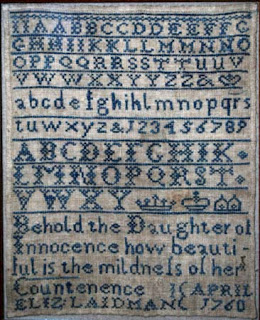 AAABBCCDDEEFF
GHHIIKKLLMMNNO
OPPQQRRSSTTUUV
VWWXXYYZZ&
abcdefghiklmnopqrs
tuwxyz&123456789
ABCDEFGHIK
LMNOPQRST
VWXY
Behold the Daughter of
Innocence how beauti-
ful is the mildneſs of her
Countenence APRIL
ELIZ LAIDMAN 1760